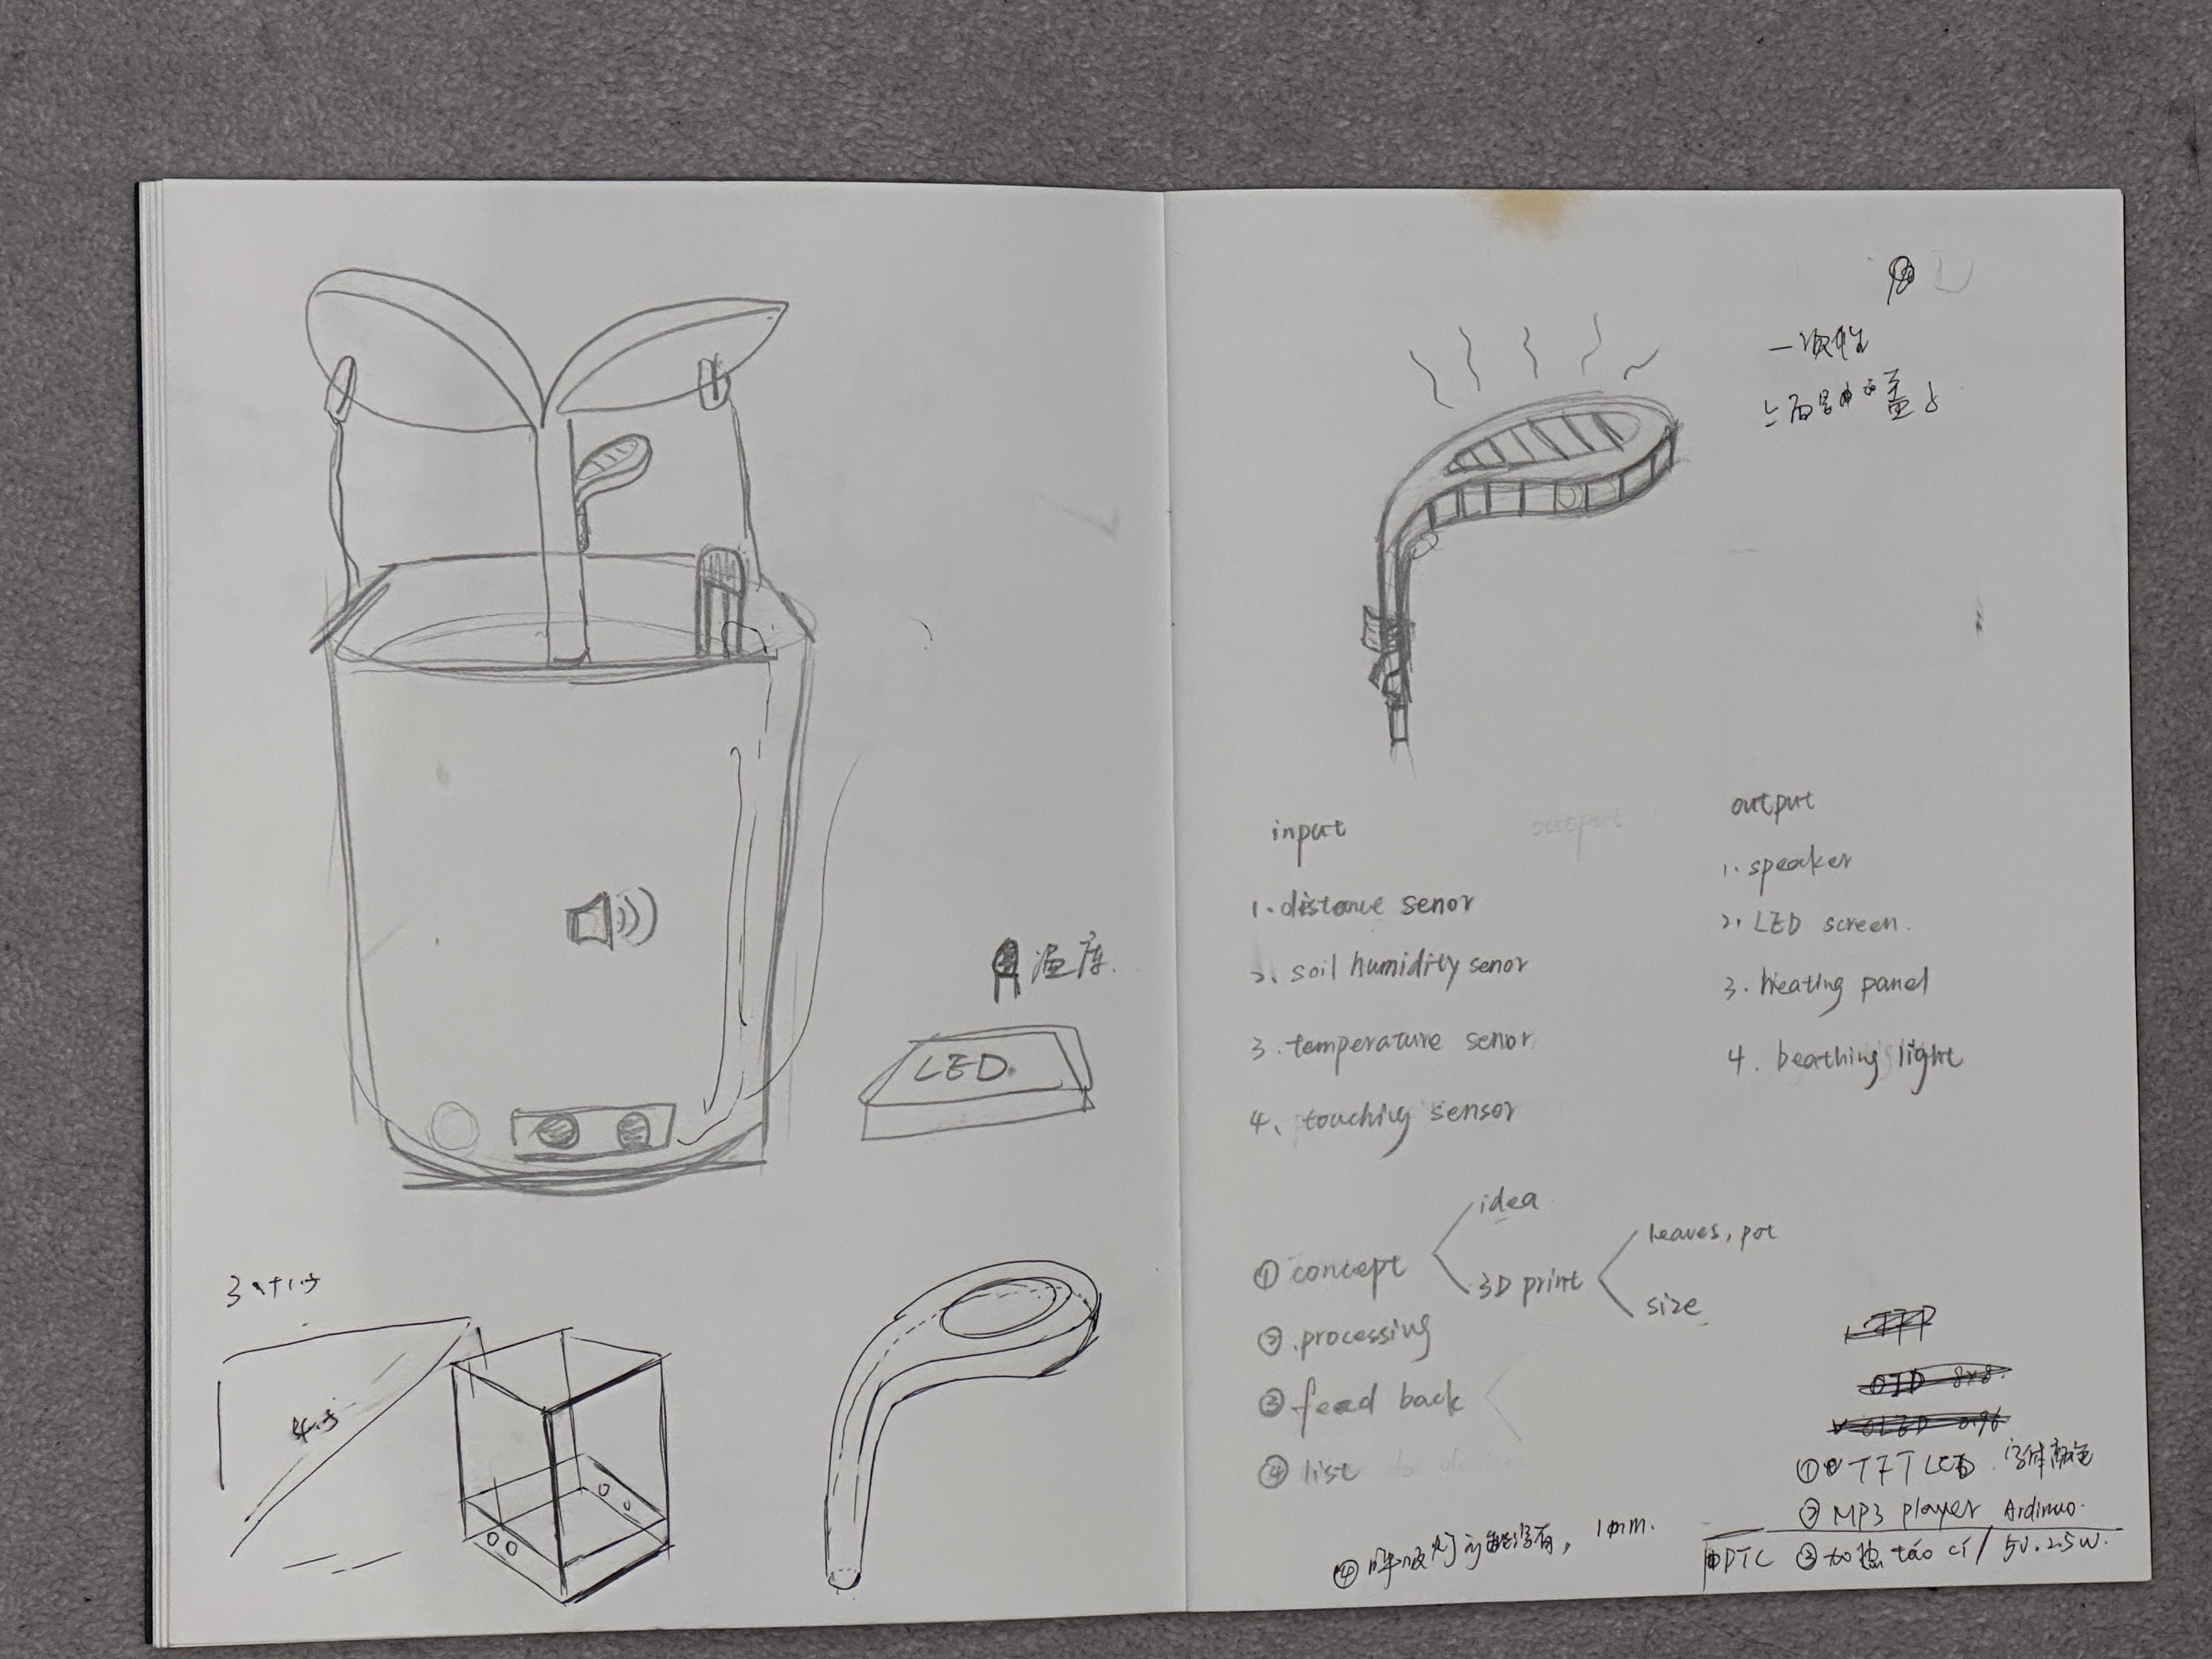 温度.
LED.
一次性
input
output
output
1. distance senor
2. soil humidity senor
3. temperature senor
4. touching sensor
1. speaker
2. LED screen.
3. heating panel
4. beathing light
① concept
idea
3D print
leaves, pot
size
② processing
③ feed back
④ list
OLED 0.96
① TFT LCD 字体颜色
② MP3 player Ardinuo.
PTC ③ 加热 táo cí / 5V. 2.5W.
④ 呼吸灯 1mm.